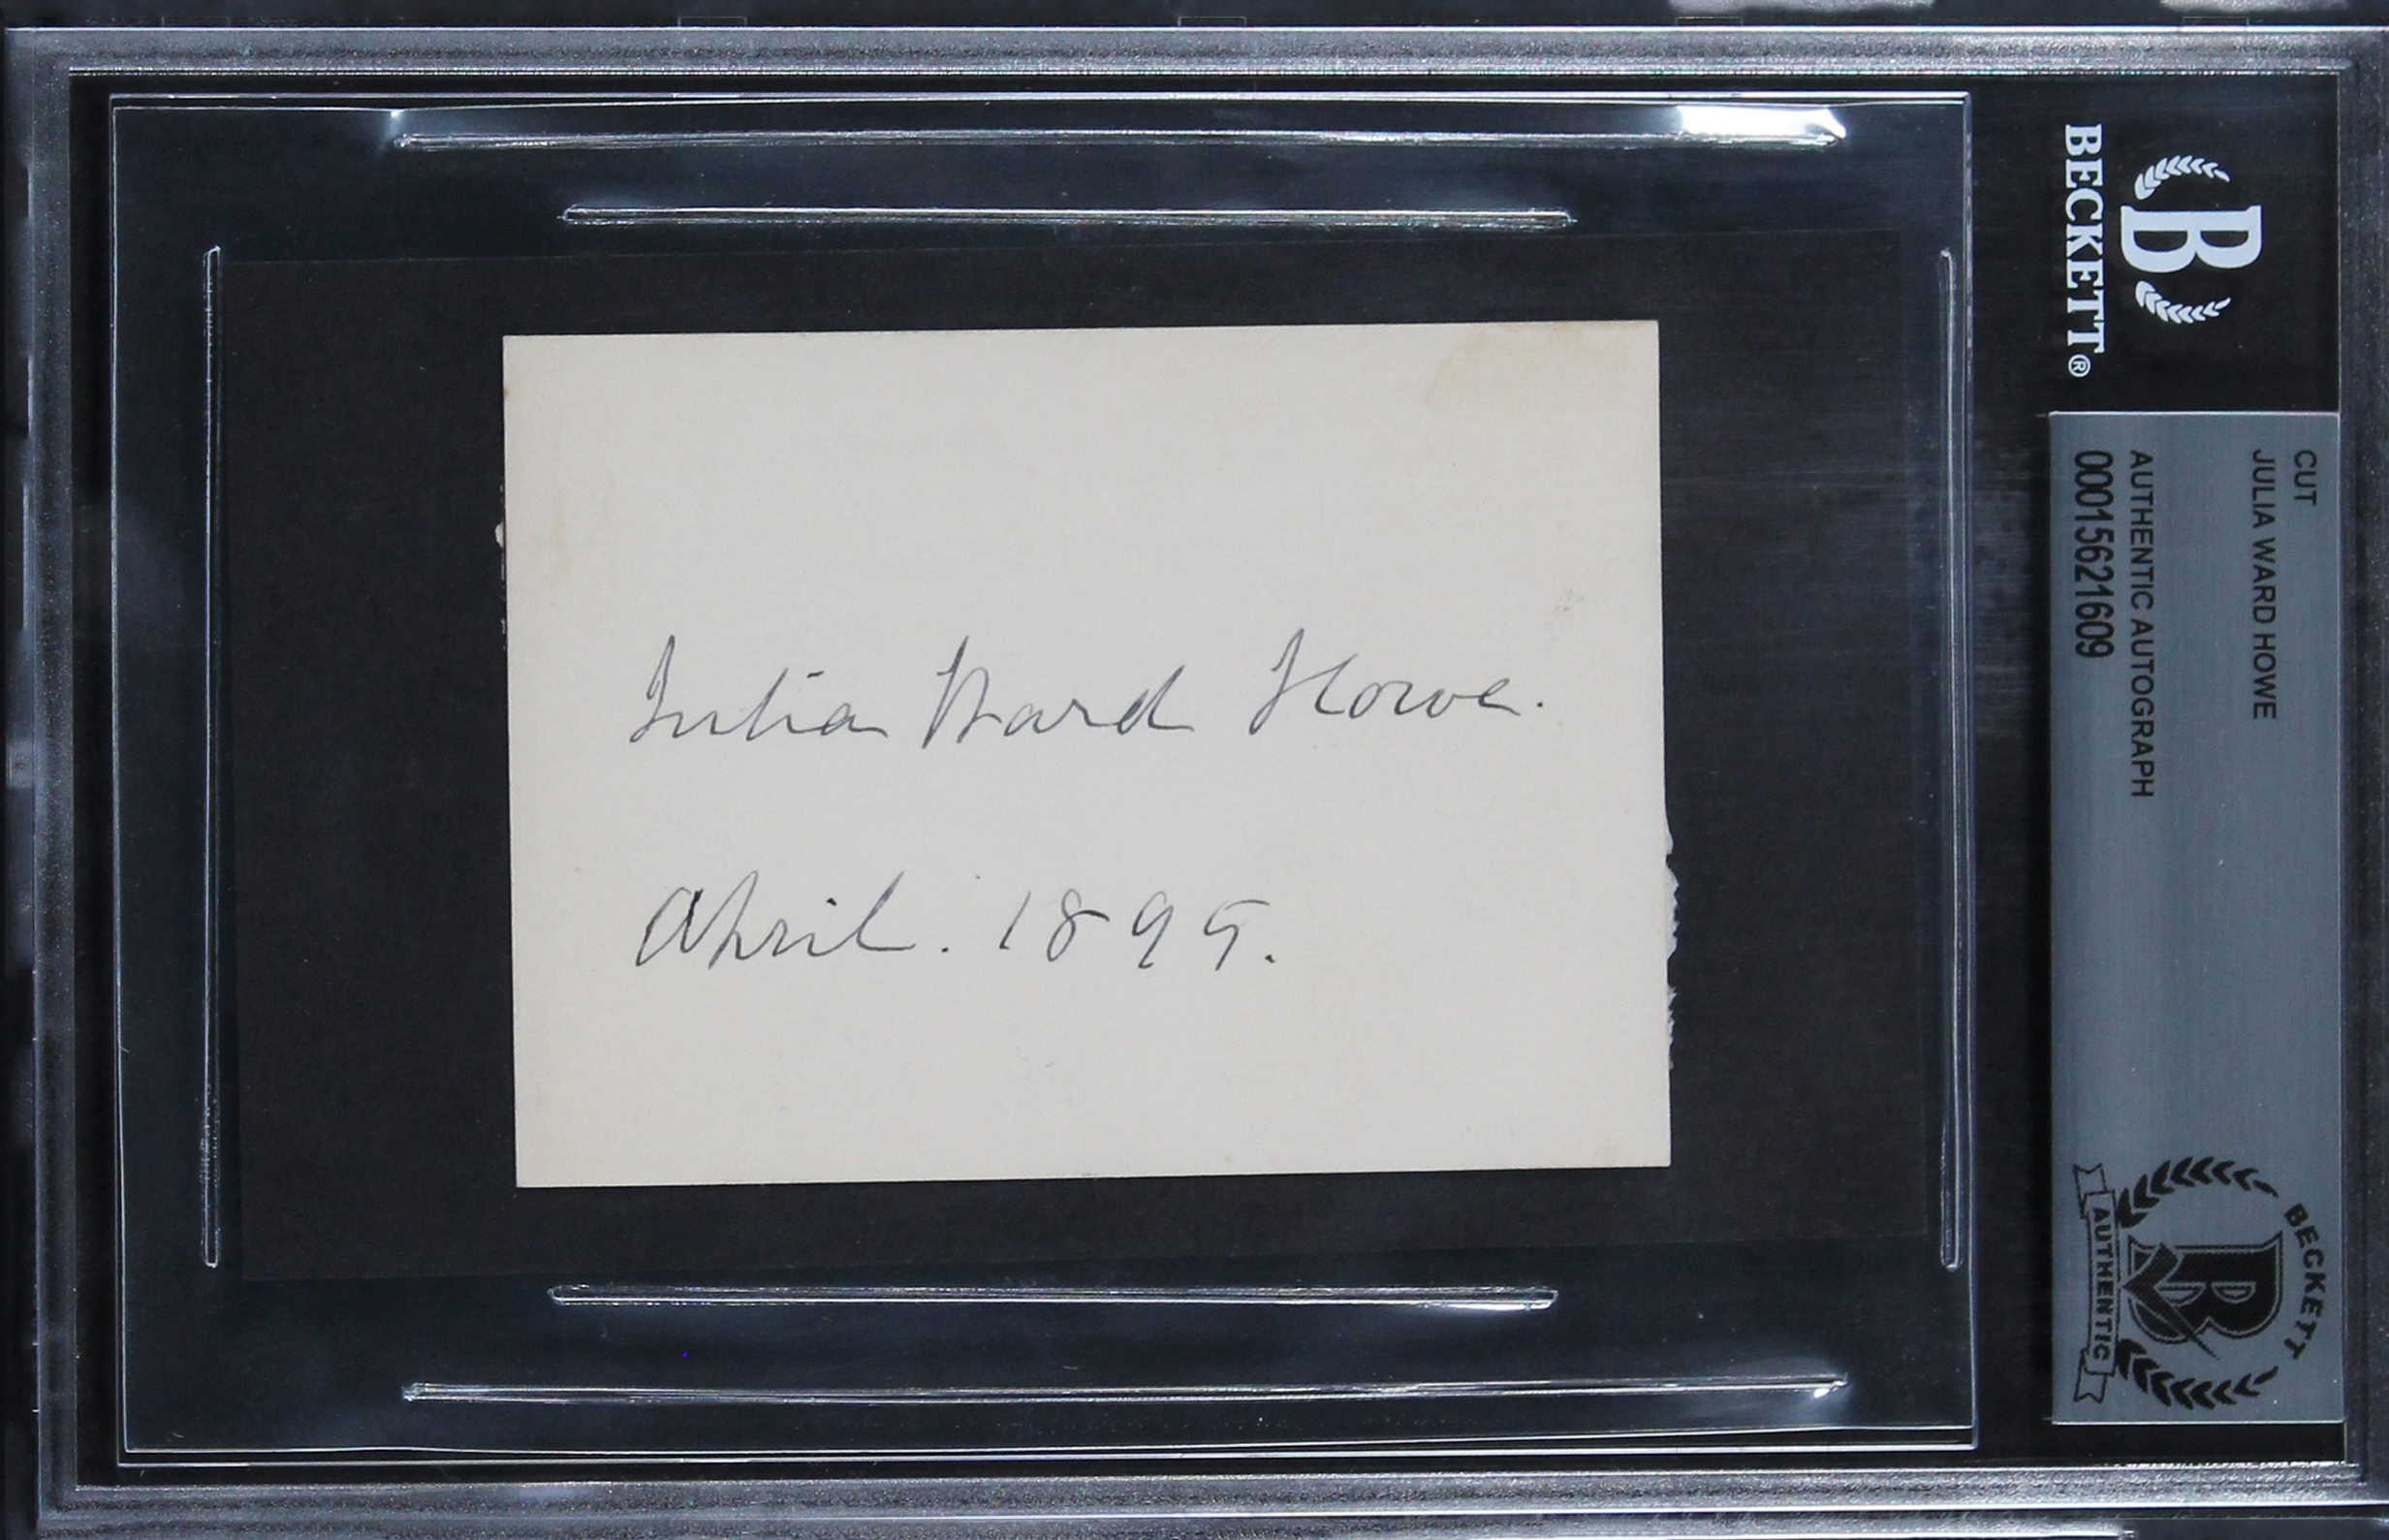 Julia Ward Howe.
April. 1895.
B
BECKETT®
CUT
JULIA WARD HOWE
AUTHENTIC AUTOGRAPH
00015621609
BECKETT
B
AUTHENTIC